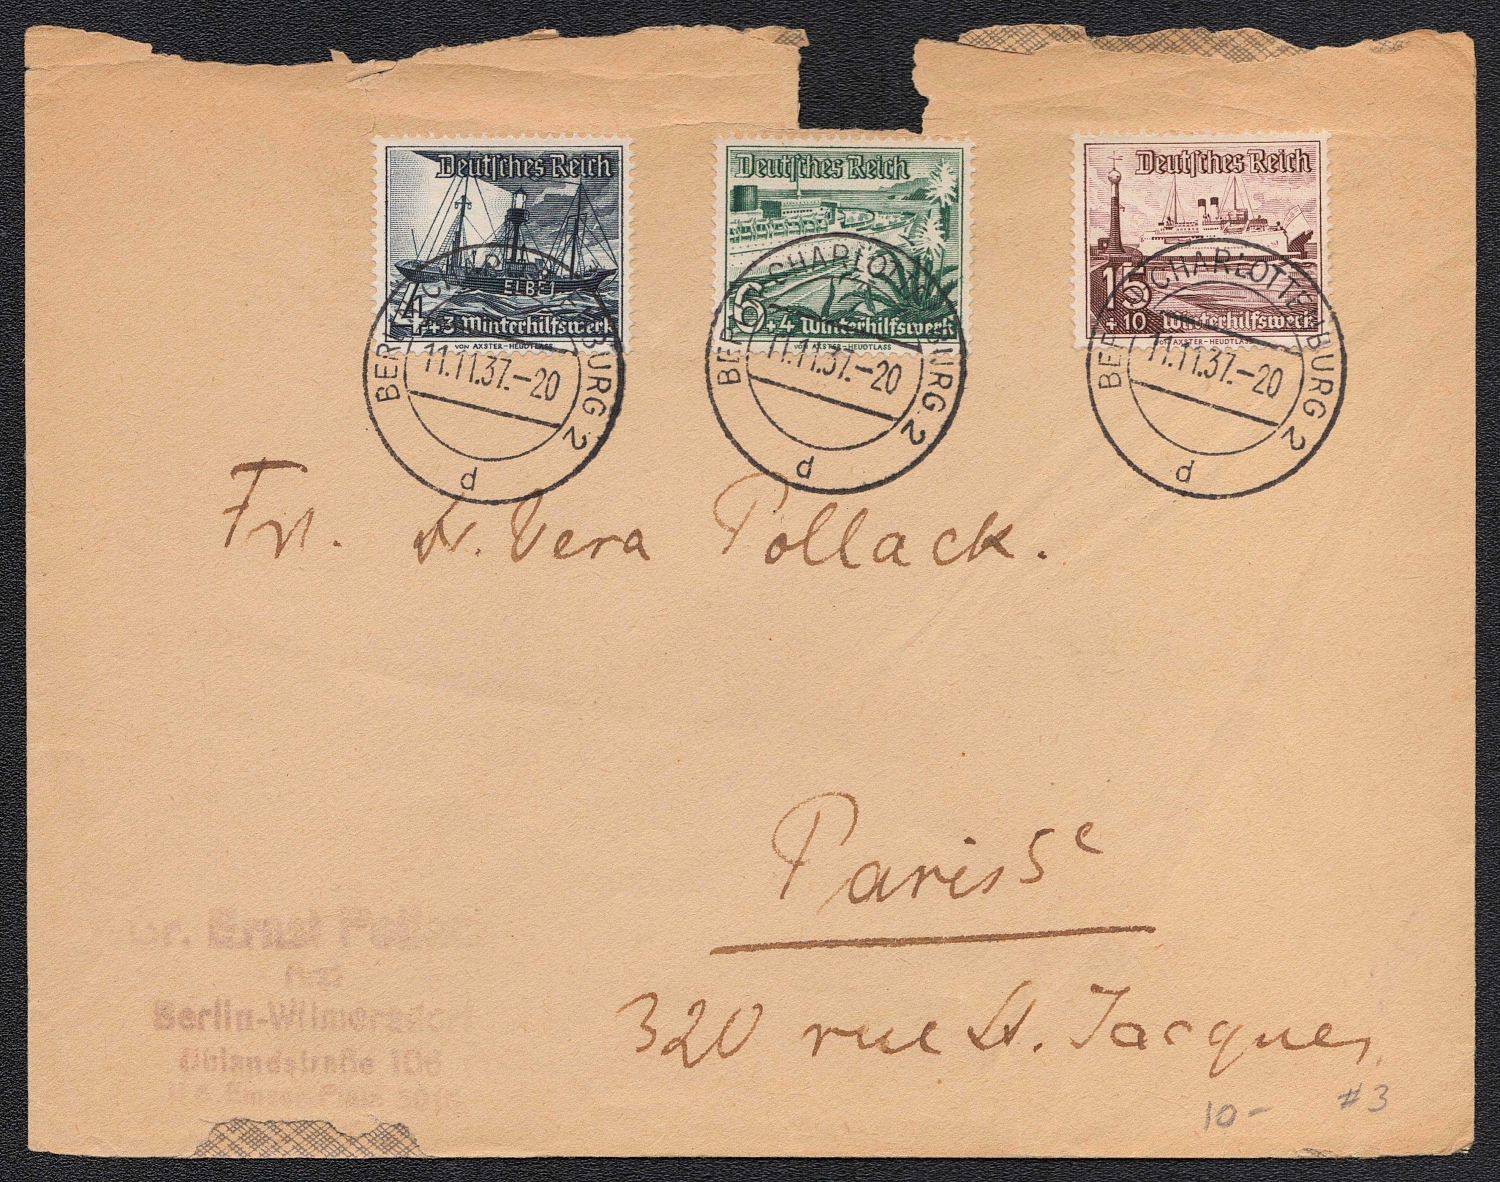 Deutsches Reich
ELBE 1
4+3 Winterhilfswerk
VON AXSTER-HEUDTLASS
Deutsches Reich
6+4 Winterhilfswerk
VON AXSTER-HEUDTLASS
Deutsches Reich
15
+10 Winterhilfswerk
VON AXSTER-HEUDTLASS
BERLIN-CHARLOTTENBURG 2
11.11.37.-20
d
BERLIN-CHARLOTTENBURG 2
11.11.37.-20
d
BERLIN-CHARLOTTENBURG 2
11.11.37.-20
d
Frl. Dr. Vera Pollack.
Paris 5e
320 rue St. Jacques,
Dr. Ernst
Berlin-Wilmersdorf
Uhlandstraße 106
10-
#3